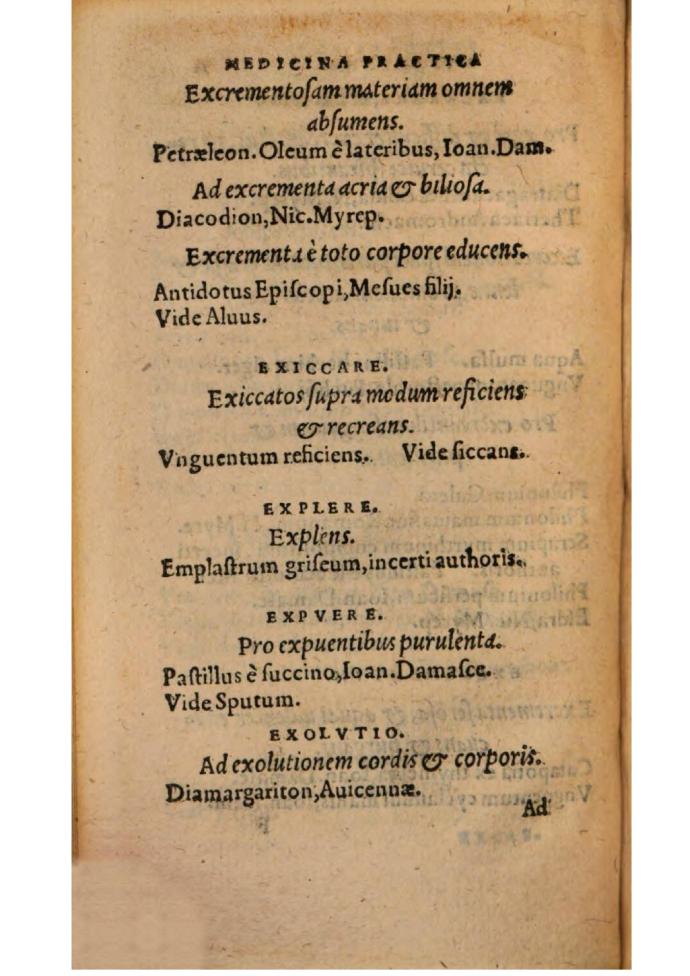 MEDICINA PRACTICA
Excrementoſam materiam omnem
abſumens.
Petræleon. Oleum è lateribus, Ioan. Dam.
Ad excrementa acria & bilioſa.
Diacodion, Nic. Myrep.
Excrementa è toto corpore educens.
Antidotus Epiſcopi, Meſues filij.
Vide Aluus.
EXICCARE.
Exiccatos ſupra modum reficiens
& recreans.
Vnguentum reficiens. Vide ſiccans.
EXPLERE.
Explens.
Emplaſtrum griſeum, incerti authoris.
EXPVERE.
Pro expuentibus purulenta.
Paſtillus è ſuccino, Ioan. Damaſce.
Vide Sputum.
EXOLVTIO.
Ad exolutionem cordis & corporis.
Diamargariton, Auicennæ.
Ad